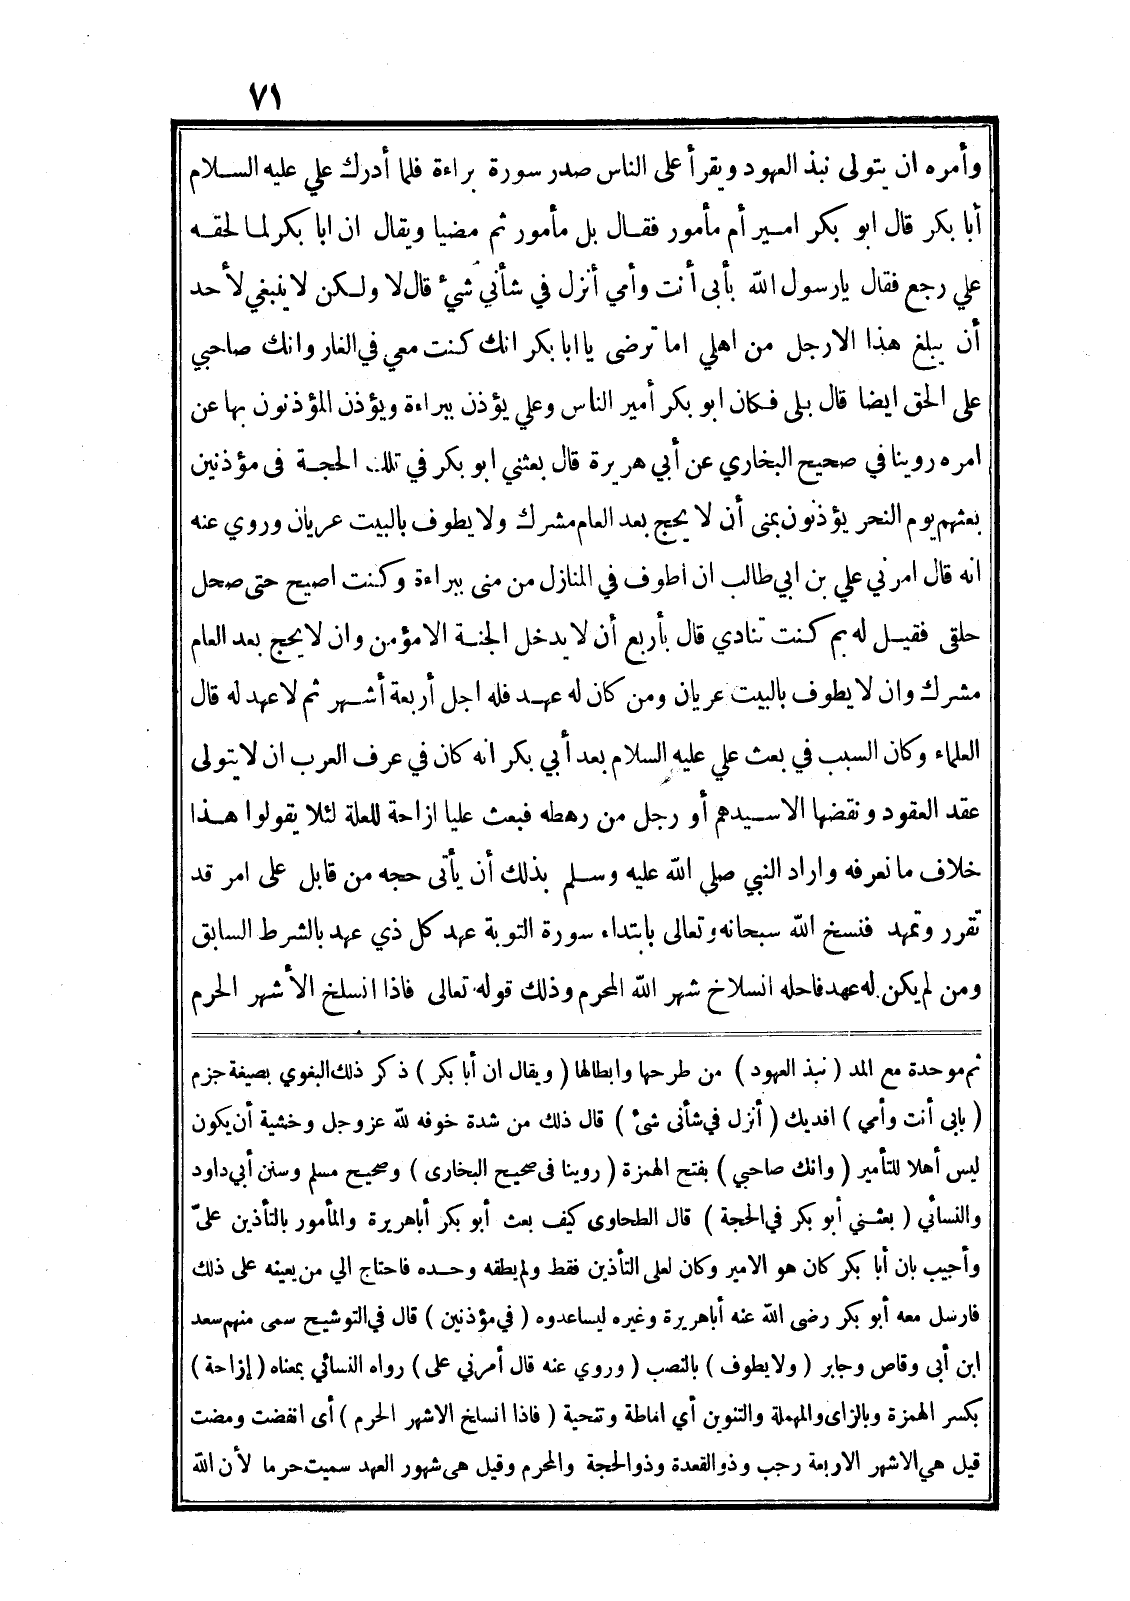 ٧١
وأمره ان يتولى نبذ العهود ويقرأ على الناس صدر سورة براءة فلما أدرك علي عليه السلام
أبا بكر قال ابو بكر امير أم مأمور فقال بل مأمور ثم مضيا ويقال ان ابا بكر لما لحقه
علي رجع فقال يارسول الله بأبى أنت وأمي أنزل في شأني شيء قال لا ولكن لا ينبغي لأحد
أن يبلغ هذا الارجل من اهلي اما ترضى ياابا بكر انك كنت معي في الغار وانك صاحبي
على الحق ايضا قال بلى فكان ابو بكر أمير الناس وعلي يؤذن ببراءة ويؤذن المؤذنون بها عن
امره روينا في صحيح البخاري عن أبي هريرة قال بعثني ابو بكر في تلك الحجة فى مؤذنين
بعثهم يوم النحر يؤذنون بمنى أن لا يحج بعد العام مشرك ولا يطوف بالبيت عريان وروي عنه
انه قال امرني علي بن ابي طالب ان أطوف في المنازل من منى ببراءة وكنت اصيح حتى صحل
حلقى فقيل له بم كنت تنادي قال بأربع أن لا يدخل الجنة الامؤمن وان لا يحج بعد العام
مشرك وان لا يطوف بالبيت عريان ومن كان له عهد فله اجل أربعة أشهر ثم لا عهد له قال
العلماء وكان السبب في بعث علي عليه السلام بعد أبي بكر انه كان في عرف العرب ان لا يتولى
عقد العقود ونقضها الاسيدهم أو رجل من رهطه فبعث عليا ازاحة للعلة لئلا يقولوا هذا
خلاف ما نعرفه واراد النبي صلي الله عليه وسلم بذلك أن يأتى حجه من قابل على امر قد
تقرر وتمهد فنسخ الله سبحانه وتعالى بابتداء سورة التوبة عهد كل ذي عهد بالشرط السابق
ومن لم يكن له عهد فاحله انسلاخ شهر الله المحرم وذلك قوله تعالى فاذا انسلخ الأشهر الحرم
ثم موحدة مع المد ( نبذ العهود ) من طرحها وابطالها ( ويقال ان أبا بكر ) ذكر ذلك البغوي بصيغة جزم
( بابى أنت وأمي ) افديك ( أنزل في شأنى شئ ) قال ذلك من شدة خوفه لله عز وجل وخشية أن يكون
ليس أهلا للتأمير ( وانك صاحبي ) بفتح الهمزة ( روينا فى صحيح البخارى ) وصحيح مسلم وسنن أبي داود
والنسائي ( بعثني أبو بكر في الحجة ) قال الطحاوى كيف بعث أبو بكر أباهريرة والمأمور بالتأذين علىّ
وأجيب بان أبا بكر كان هو الامير وكان لعلى التأذين فقط ولم يطقه وحده فاحتاج الي من يعينه على ذلك
فارسل معه أبو بكر رضى الله عنه أباهريرة وغيره ليساعدوه ( في مؤذنين ) قال في التوشيح سمى منهم سعد
ابن أبى وقاص وجابر ( ولا يطوف ) بالنصب ( وروي عنه قال أمرني على ) رواه النسائي بمعناه ( إزاحة )
بكسر الهمزة وبالزاى والمهملة والتنوين أي اماطة وتنحية ( فاذا انسلخ الاشهر الحرم ) أى انقضت ومضت
قيل هي الاشهر الاربعة رجب وذو القعدة وذو الحجة والمحرم وقيل هى شهور العهد سميت حرما لأن الله